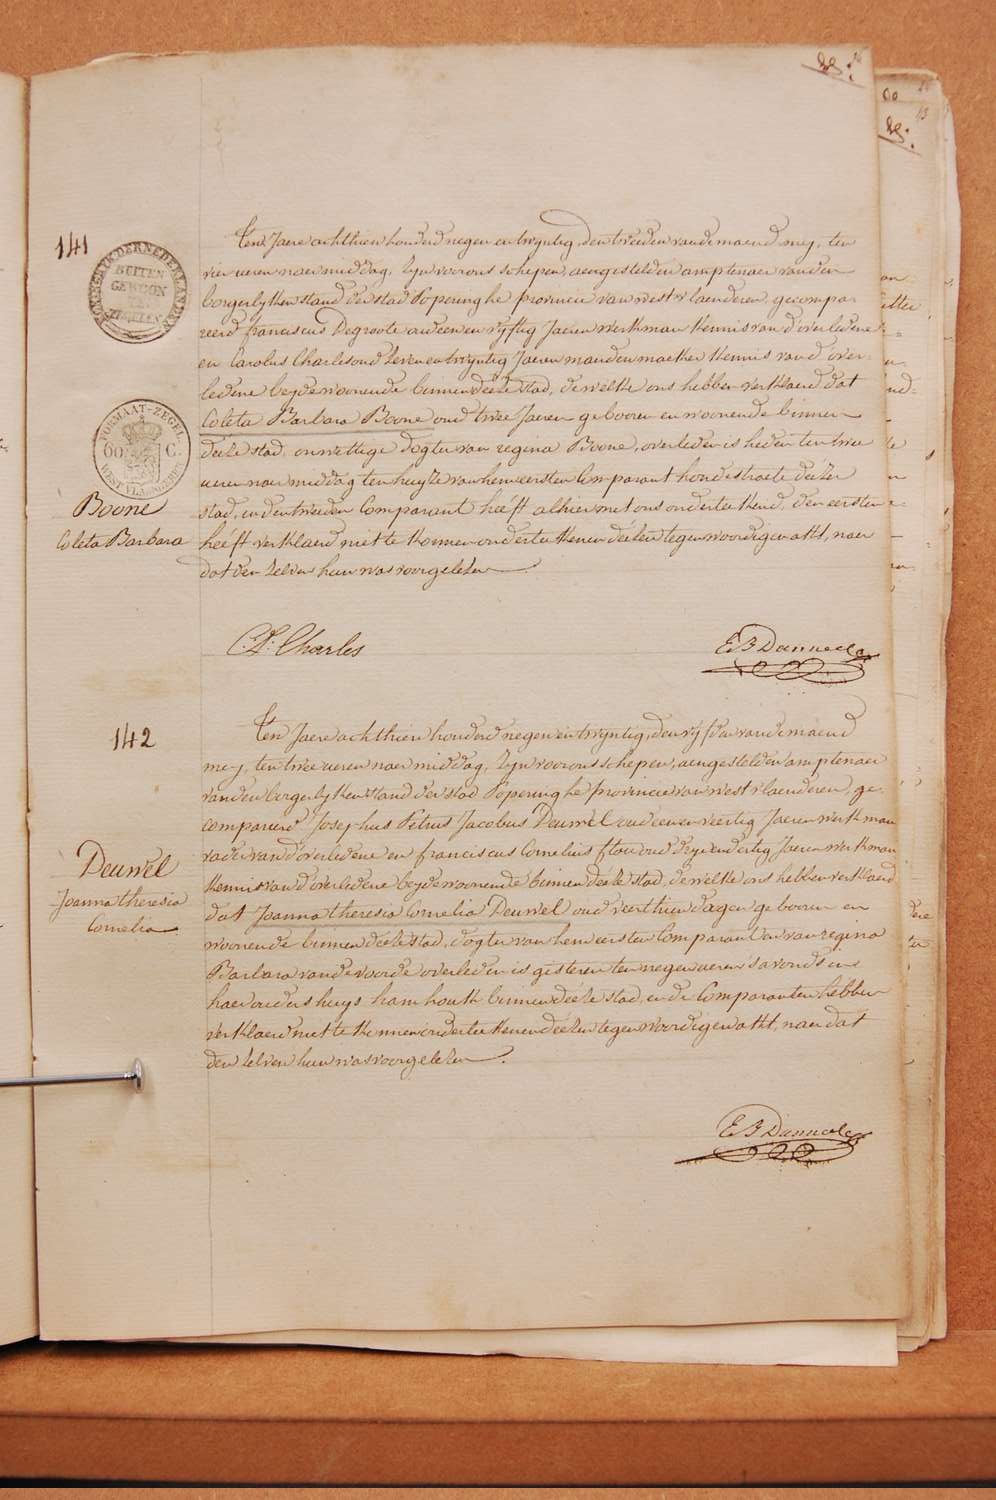 141
KONINGRYK DER NEDERLANDEN
BUITEN
GEWOON
ZEGELEN
FORMAAT-ZEGEL.
60 C.
WEST VLAANDEREN
Boone
Coleta Barbara
Ten Jaere achthien honderd negen en twyntig, den tweeden van de maend mey, ten
vier ueren naer middag, zyn voor ons schepen, aengestelden amptenaer van den
borgerlyken stand der stad Poperinghe provincie van westvlaenderen, gecompar
reerd franciscus Degroote oud een en vyftig Jaeren werkman kennis van d'overledene
en Carolus Charles oud zeven en twyntig Jaeren mandenmaeker kennis van d'over-
ledene beyde woonende binnen deeze stad, dewelke ons hebben verklaerd dat
Coleta Barbara Boone oud twee Jaeren gebooren en woonende binnen
deeze stad, onwettige dogter van regina Boone, overleden is heden ten twee
ueren naer middag ten huyze van hem eersten Comparant hondestraete deezer
stad, en den tweeden Comparant heéft alhier met ons onderteekend, den eersten
heéft verklaerd niet te konnen onderteekenen deézen tegenwoordigen akt, naer
dat den zelven hun was voorgelezen
C. L. Charles
E B Danneel
142
Deuwel
Joanna theresia
Cornelia
Ten Jaere achthien honderd negen en twyntig, den vyfden van de maend
mey, ten twee ueren naer middag, zyn voor ons schepen, aengestelden amptenaer
van den borgerlyken stand der stad Poperinghe provincie van westvlaenderen, ge-
compareerd Josephus Pitrus Jacobus Deuwel oud een en veertig Jaeren werkman
vader van d'overledene en franciscus Cornelius flou oud dryendertig Jaeren werkman
kennis van d'overledene beyde woonende binnen deeze stad, dewelke ons hebben verklaerd
dat Joanna theresia Cornelia Deuwel oud veerthien dagen gebooren en
woonende binnen deeze stad, dogter van hem eersten Comparant en van regina
Barbara vande voorde overleden is gisteren ten negen ueren s'avonds in
haer ouders huys hamhouk binnen deéze stad, en de Comparanten hebben
verklaerd niet te kennen onderteekenen deézen tegenwoordigen akt, naer dat
den zelven hun was voorgelezen
E B Danneel